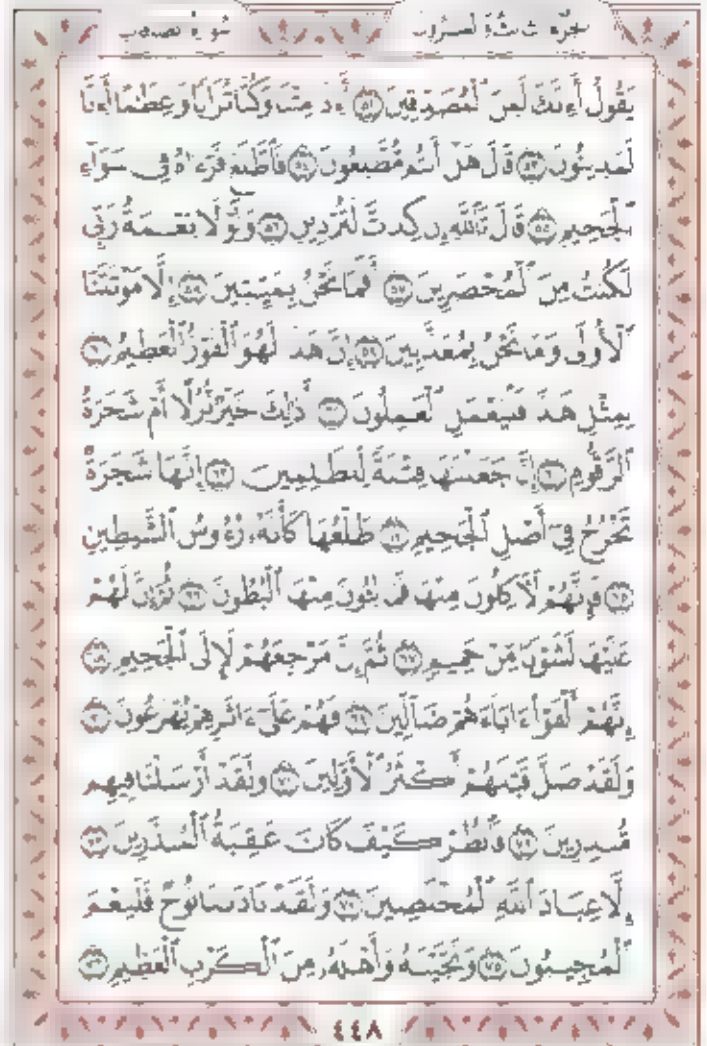 سورة الصافات الجزء الثالث والعشرون
يَقُولُ أَءِنَّكَ لَمِنَ ٱلْمُصَدِّقِينَ ٥٢ أَءِذَا مِتْنَا وَكُنَّا تُرَابًا وَعِظَٰمًا أَءِنَّا
لَمَدِينُونَ ٥٣ قَالَ هَلْ أَنتُم مُّطَّلِعُونَ ٥٤ فَٱطَّلَعَ فَرَءَاهُ فِى سَوَآءِ
ٱلْجَحِيمِ ٥٥ قَالَ تَٱللَّهِ إِن كِدتَّ لَتُرْدِينِ ٥٦ وَلَوْلَا نِعْمَةُ رَبِّى
لَكُنتُ مِنَ ٱلْمُحْضَرِينَ ٥٧ أَفَمَا نَحْنُ بِمَيِّتِينَ ٥٨ إِلَّا مَوْتَتَنَا
ٱلْأُولَىٰ وَمَا نَحْنُ بِمُعَذَّبِينَ ٥٩ إِنَّ هَٰذَا لَهُوَ ٱلْفَوْزُ ٱلْعَظِيمُ ٦٠
لِمِثْلِ هَٰذَا فَلْيَعْمَلِ ٱلْعَٰمِلُونَ ٦١ أَذَٰلِكَ خَيْرٌ نُّزُلًا أَمْ شَجَرَةُ
ٱلزَّقُّومِ ٦٢ إِنَّا جَعَلْنَٰهَا فِتْنَةً لِّلظَّٰلِمِينَ ٦٣ إِنَّهَا شَجَرَةٌ
تَخْرُجُ فِىٓ أَصْلِ ٱلْجَحِيمِ ٦٤ طَلْعُهَا كَأَنَّهُۥ رُءُوسُ ٱلشَّيَٰطِينِ
٦٥ فَإِنَّهُمْ لَءَاكِلُونَ مِنْهَا فَمَالِـُٔونَ مِنْهَا ٱلْبُطُونَ ٦٦ ثُمَّ إِنَّ لَهُمْ
عَلَيْهَا لَشَوْبًا مِّنْ حَمِيمٍ ٦٧ ثُمَّ إِنَّ مَرْجِعَهُمْ لَإِلَى ٱلْجَحِيمِ ٦٨
إِنَّهُمْ أَلْفَوْا۟ ءَابَآءَهُمْ ضَآلِّينَ ٦٩ فَهُمْ عَلَىٰٓ ءَاثَٰرِهِمْ يُهْرَعُونَ ٧٠
وَلَقَدْ ضَلَّ قَبْلَهُمْ أَكْثَرُ ٱلْأَوَّلِينَ ٧١ وَلَقَدْ أَرْسَلْنَا فِيهِم
مُّنذِرِينَ ٧٢ فَٱنظُرْ كَيْفَ كَانَ عَٰقِبَةُ ٱلْمُنذَرِينَ ٧٣
إِلَّا عِبَادَ ٱللَّهِ ٱلْمُخْلَصِينَ ٧٤ وَلَقَدْ نَادَىٰنَا نُوحٌ فَلَنِعْمَ
ٱلْمُجِيبُونَ ٧٥ وَنَجَّيْنَٰهُ وَأَهْلَهُۥ مِنَ ٱلْكَرْبِ ٱلْعَظِيمِ ٧٦
٤٤٨